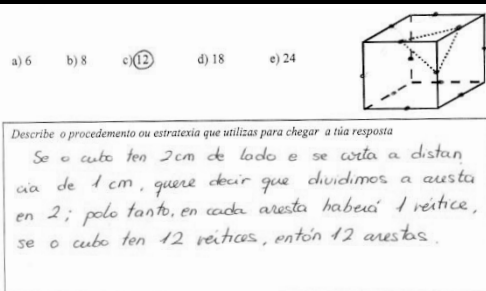 a) 6 b) 8 c) 12 d) 18 e) 24
Describe o procedemento ou estratexia que utilizas para chegar a túa resposta
Se o cubo ten 2cm de lado e se corta a distan
cia de 1 cm, quere decir que dividimos a aresta
en 2; polo tanto, en cada aresta haberá 1 vértice,
se o cubo ten 12 vértices, entón 12 arestas.